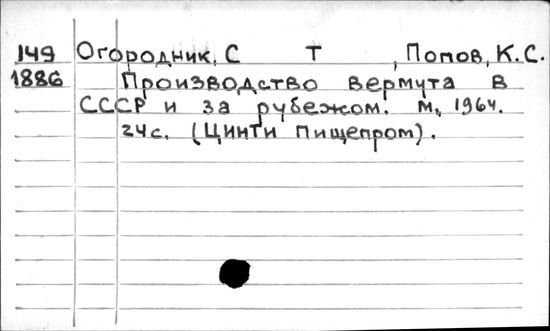 149 Огородник, С Т , Попов, К.С.
1886 Производство вермута в
СССР и за рубежом. М., 1964.
24с. (ЦИНТИ пищепром).